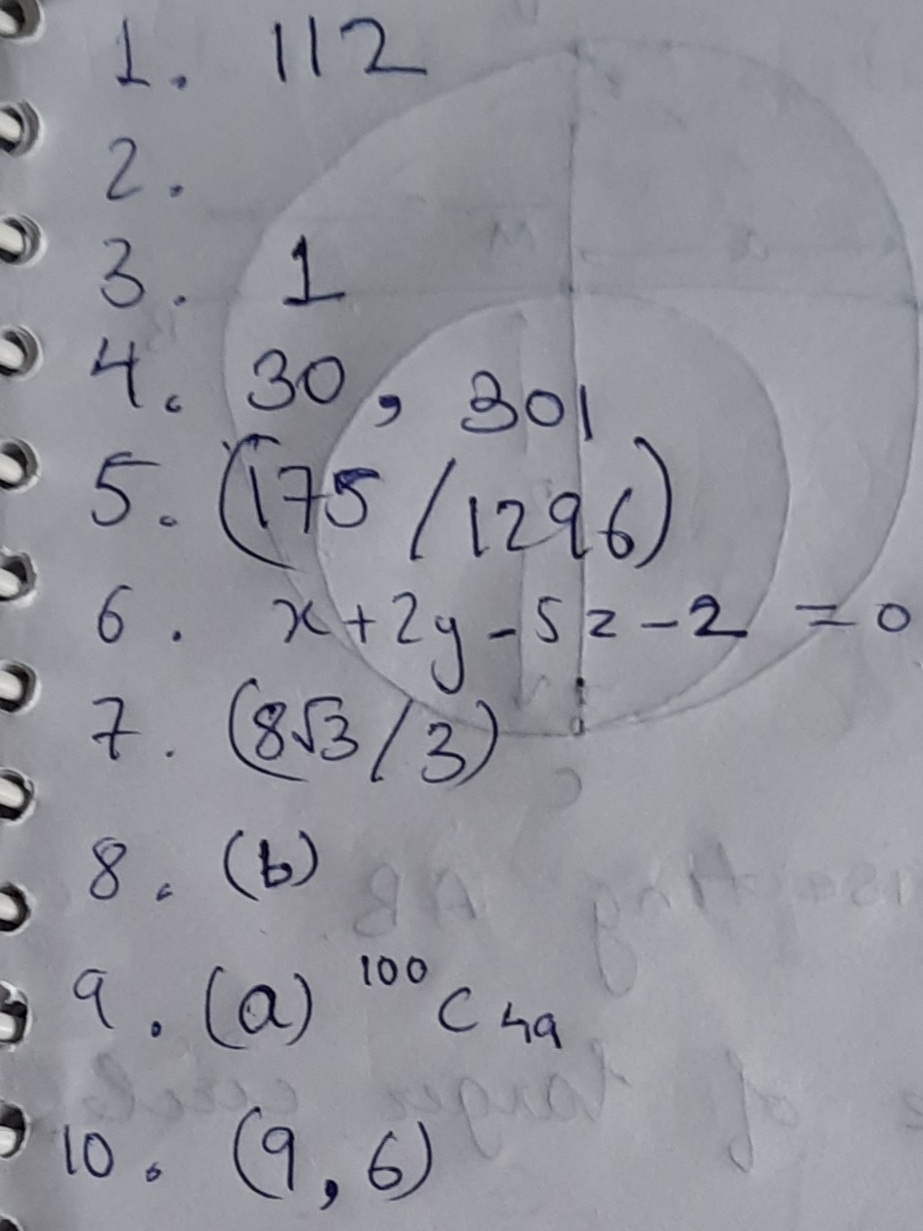 1. 112
2.
3. 1
4. 30, 301
5. (175/1296)
6. x+2y-5z-2=0
7. (8√3/3)
8. (b)
9. (a) ¹⁰⁰C₄₉
10. (9,6)